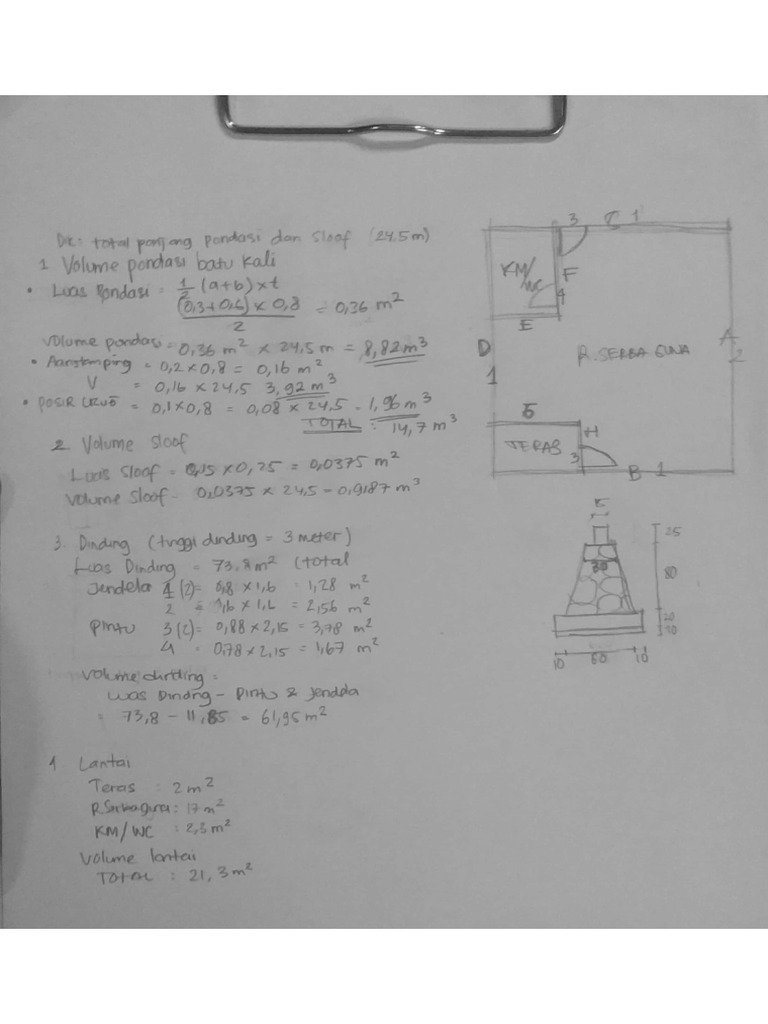 Dik: total panjang pondasi dan sloof (24,5 m)
1. Volume pondasi batu kali
• Luas Pondasi = 1/2 (a+b) x t
(0,3+0,6) x 0,8 / 2 = 0,36 m²
Volume pondasi = 0,36 m² x 24,5 m = 8,82 m³
• Aanstamping = 0,2 x 0,8 = 0,16 m²
V = 0,16 x 24,5 3,92 m³
• PASIR URUG = 0,1 x 0,8 = 0,08 x 24,5 = 1,96 m³
TOTAL : 14,7 m³
2. Volume sloof
Luas Sloof = 0,15 x 0,25 = 0,0375 m²
Volume Sloof = 0,0375 x 24,5 = 0,9187 m³
3. Dinding (tinggi dinding = 3 meter)
Luas Dinding = 73,8 m² (total
Jendela 1 (2) = 0,8 x 1,6 = 1,28 m²
2 = 1,6 x 1,6 = 2,56 m²
Pintu 3 (2) = 0,88 x 2,15 = 3,78 m²
4 = 0,78 x 2,15 = 1,67 m²
Volume dinding =
Luas Dinding - Pintu & Jendela
= 73,8 - 11,85 = 61,95 m²
4 Lantai
Teras : 2 m²
R Serbaguna : 17 m²
KM/WC : 2,3 m²
Volume lantai
TOTAL : 21,3 m²
3 C 1
KM/
WC
F
4
E
D
1
R. SERBA GUNA
A
2
TERAS
H
3
B 1
25
30
80
20
10
10 60 10